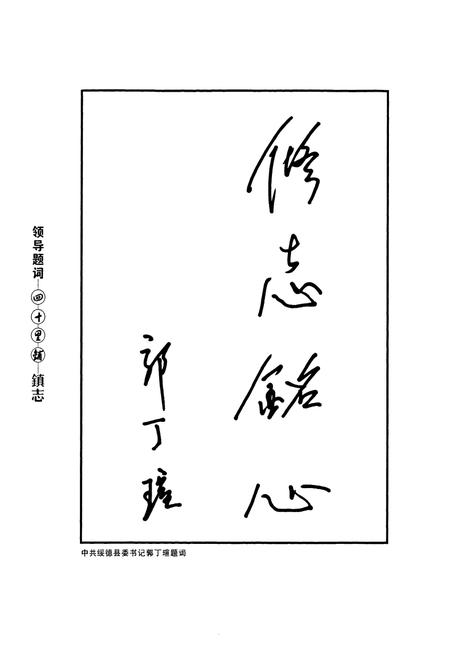 修志銘心
郭丁瑄
领导题词—四十里铺—鎮志
中共绥德县委书记郭丁瑄题词